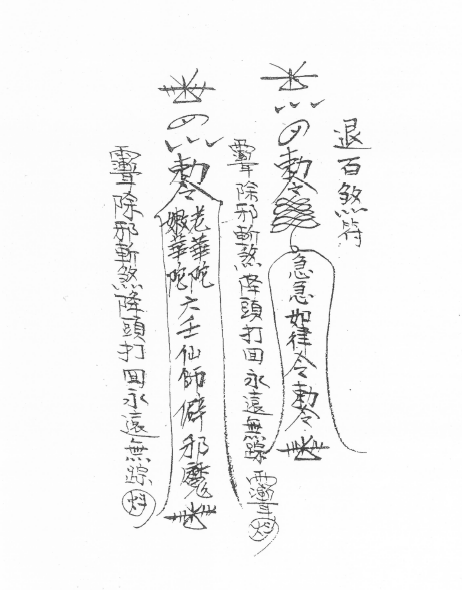 退百煞符
勅令
急急如律令勅令
除邪斬煞降頭打回永遠無踪
勅令
老華陀
嫩華陀
六壬仙師僻邪魔
除邪斬煞降頭打回永遠無踪